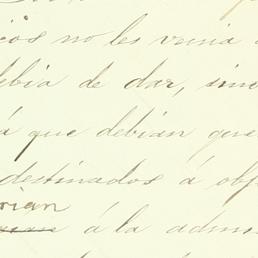 icós no les venia
debia de dar, sino
á que debian que
destinados á obj
rian
á la admi